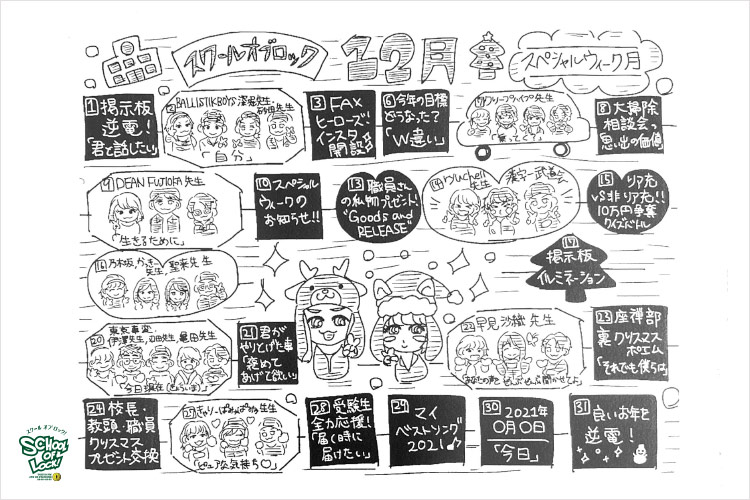 スクールオブロック 12月 スペシャルウィーク月
1 掲示板
逆電!
「君と話したい」
2 BALLISTIK BOYS 深堀先生・
砂田先生
「自分」
3 FAX
ヒーローズ
インスタ
開設
6 今年の目標
どうなった?
「W違い」
フレーフレーフレイプ先生
8 大掃除
相談会っ
思い出の価値
9 DEAN FUJIOKA 先生
「生きるために」
10 スペシャル
ウィークの
お知らせ!!
13 職員さん
の私物プレゼント!
"Goods and
RELEASE"
14 yuchell
先生
漢字一武道会
15 リア充
VS非リア充!!
10万円争奪
クイズバトル
16 乃木坂,かっきー
先生,聖来先生
17
掲示板
イルミネーション
20 東京事変
伊澤先生,刃田先生,亀田先生
「今日現在(きょういま)」
21 君が
やりとげた事
「褒めて
あげて欲しい」
22 早見沙織先生
23 座禅部
裏クリスマス
ポエム
「それでも僕らは」
24 校長・
教頭・職員
クリスマス
プレゼント交換
27 きゃりーぱみゅぱみゅ先生
「ピュアな気持ち♡」
28 受験生
全力応援!
「届く時に
届けたい」
29 マイ
ベストソング
2021
30 2021年
0月0日
「今日」
31 良いお年を
逆電!
スクールオブロック!
SCHOOL
OF
LOCK!